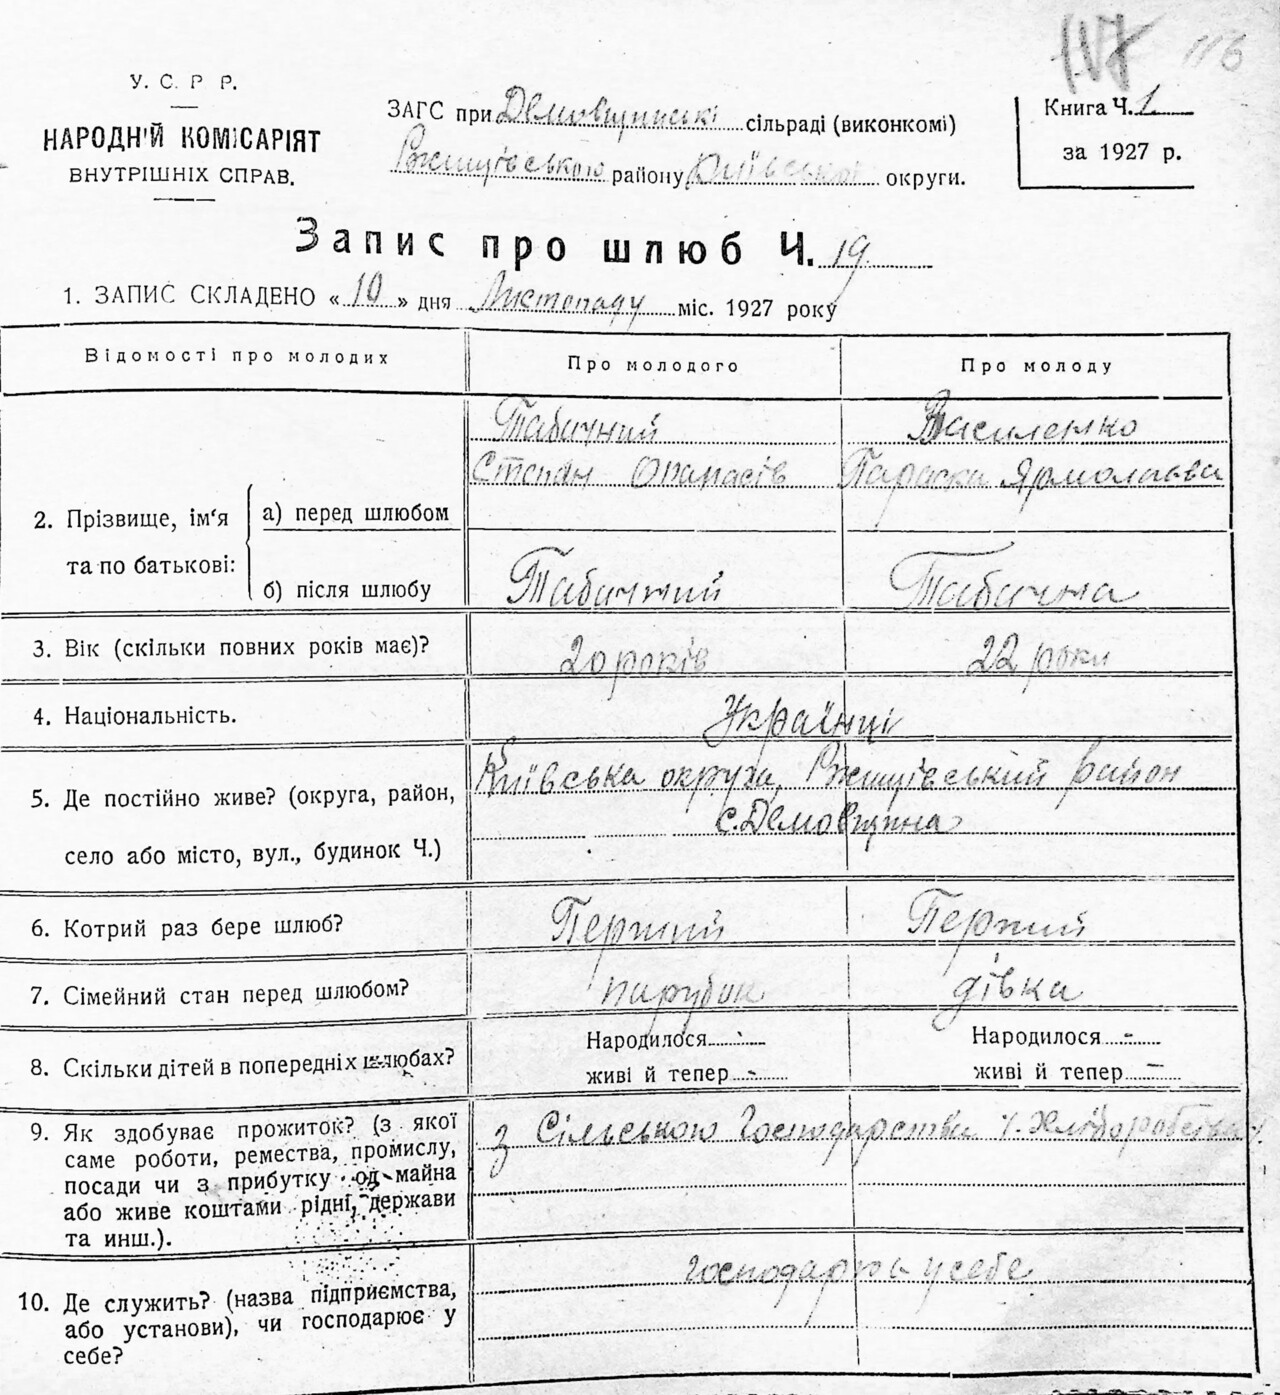 117 116
У. С. Р Р.
НАРОДНІЙ КОМІСАРІЯТ
ВНУТРІШНІХ СПРАВ.
ЗАГС при Демовщинські сільраді (виконкомі)
Ржищівського району Київської округи.
Книга Ч. 1
за 1927 р.
Запис про шлюб Ч. 19
1. ЗАПИС СКЛАДЕНО «10» дня Листопаду міс. 1927 року
Відомості про молодих
Про молодого
Про молоду
2. Прізвище, ім'я
та по батькові:
а) перед шлюбом
Табачний
Степан Опанасів
Василенко
Параска Ярмолаєва
б) після шлюбу
Табачний
Табачна
3. Вік (скільки повних років має)?
20 років
22 роки
4. Національність.
Українці
5. Де постійно живе? (округа, район,
село або місто, вул., будинок Ч.)
Київська округа, Ржищівський район
с. Демовщина
6. Котрий раз бере шлюб?
Перший
Перший
7. Сімейний стан перед шлюбом?
парубок
дівка
8. Скільки дітей в попередніх шлюбах?
Народилося -
живі й тепер -
Народилося -
живі й тепер -
9. Як здобуває прожиток? (з якої
саме роботи, ремества, промислу,
посади чи з прибутку од майна
або живе коштами рідні, держави
та инш.).
з Сільського Господарства /. Хліборобства /.
10. Де служить? (назва підприємства,
або установи), чи господарює у
себе?
у себе